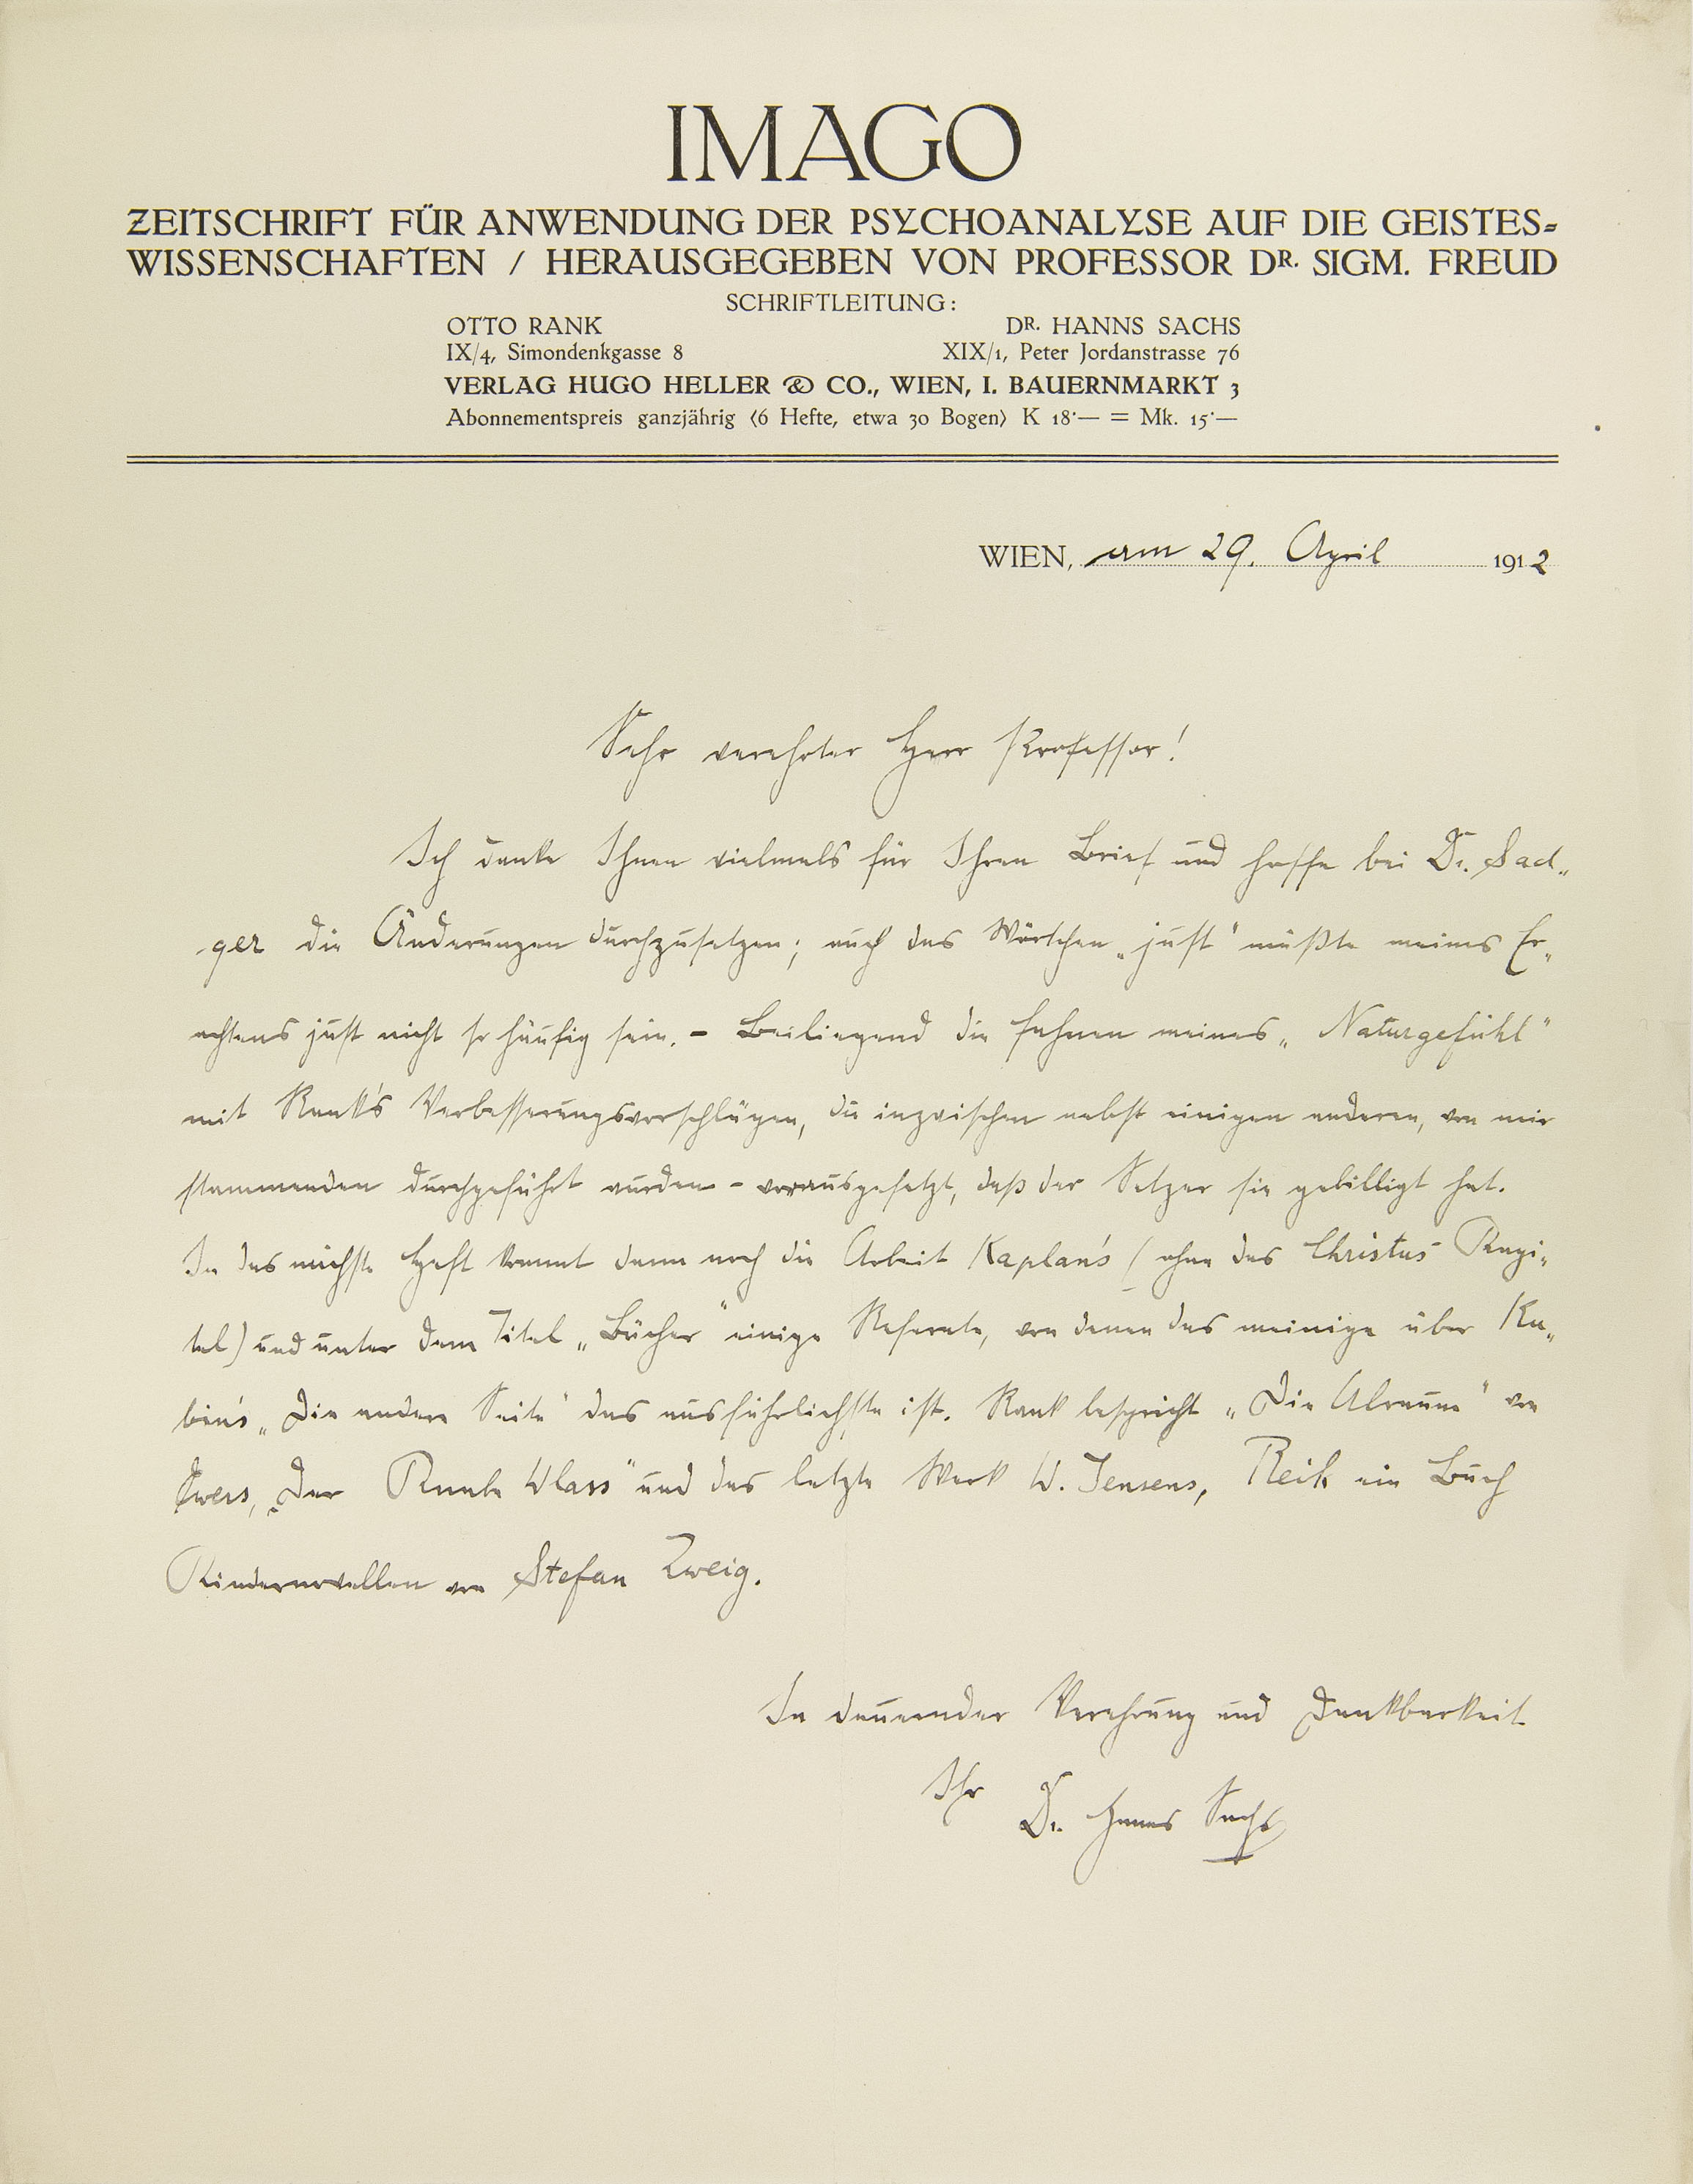 IMAGO
ZEITSCHRIFT FÜR ANWENDUNG DER PSYCHOANALYSE AUF DIE GEISTES-
WISSENSCHAFTEN / HERAUSGEGEBEN VON PROFESSOR DR. SIGM. FREUD
SCHRIFTLEITUNG:
OTTO RANK DR. HANNS SACHS
IX/4, Simondenkgasse 8 XIX/1, Peter Jordanstrasse 76
VERLAG HUGO HELLER & CO., WIEN, I. BAUERNMARKT 3
Abonnementspreis ganzjährig (6 Hefte, etwa 30 Bogen) K 18·— = Mk. 15·—
WIEN, am 29. April 1912
Sehr verehrter Herr Professor!
Ich danke Ihnen vielmals für Ihren Brief und hoffe bei Dr. Sad„
ger die Änderungen durchzusetzen; auch das Wörtchen „just" müßte meines Er„
achtens just nicht so häufig sein. – Beiliegend die Fahnen meines „Naturgefühl"
mit Rank's Verbesserungsvorschlägen, die inzwischen nebst einigen anderen, von mir
stammenden durchgeführt wurden – vorausgesetzt, daß der Setzer sie gebilligt hat.
In das nächste Heft kommt dann noch die Arbeit Kaplan's (ohne das Christus-Kapi„
tel) und unter dem Titel „Bücher" einige Referate, von denen das meinige über Ku„
bin's „Die andere Seite" das ausführlichste ist. Rank bespricht „Die Alraune" von
Ewers, „Der Knabe Wlass" und das letzte Werk W. Jensens, Reik ein Buch
Kindernovellen von Stefan Zweig.
In dauernder Verehrung und Dankbarkeit
Ihr
Dr. Hanns Sachs